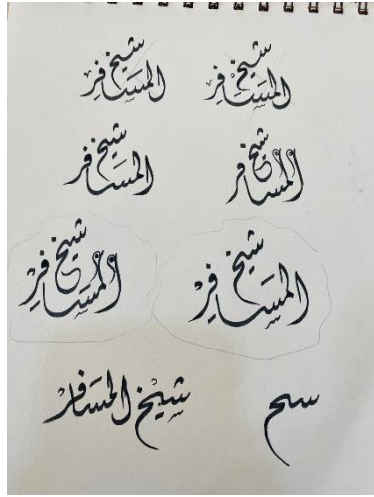 شيخ المسافر شيخ المسافر
شيخ المسافر شيخ المسافر
شيخ المسافر شيخ المسافر
شيخ المسافر